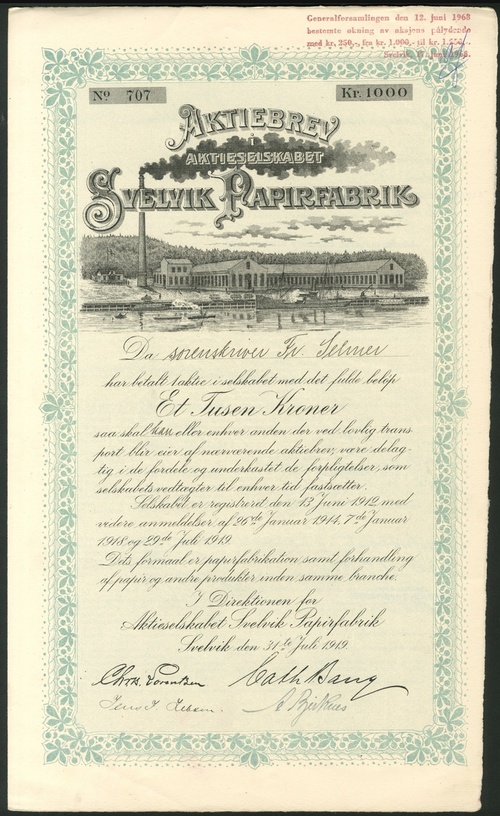 Generalforsamlingen den 12. juni 1968
bestemte økning av aksjens pålydende
med kr. 250,- fra kr. 1.000,- til kr.
Svelvik juni 1968.
No. 707
Kr. 1000
AKTIEBREV
i
AKTIESELSKABET
SVELVIK PAPIRFABRIK
Da sorenskriver Fr. Selmer
har betalt 1 aktie i selskabet med det fulde beløp
Et Tusen Kroner
saa skal han eller enhver anden der ved lovlig trans-
port blir eier af nærværende aktiebrev, være delag-
tig i de fordele og underkastet de forpligtelser, som
selskabets vedtægter til enhver tid fastsætter.
Selskabet er registrert den 13 Juni 1912, med
videre anmeldelser af 26de Januar 1914, 7de Januar
1918 og 29de Juli 1919.
Dets formaal er papirfabrikation samt forhandling
af papir og andre produkter inden samme branche.
I Direktionen for
Aktieselskabet Svelvik Papirfabrik
Svelvik den 31te Juli 1919.
Chr. Lorentzen
Cath Bang